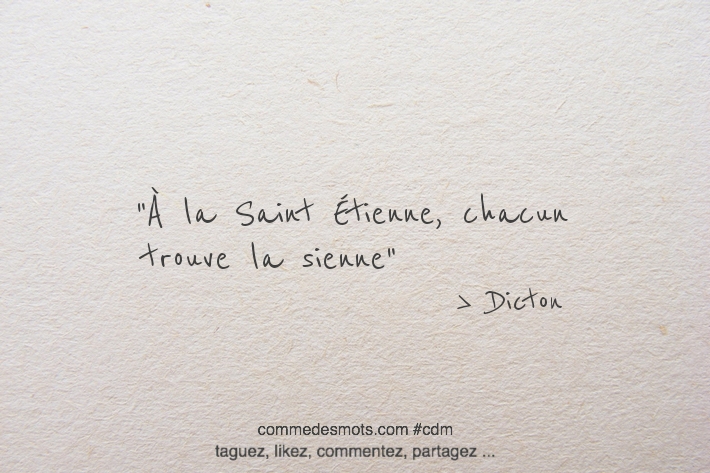 "À la Saint Étienne, chacun
trouve la sienne"
> Dicton
commedesmots.com #cdm
taguez, likez, commentez, partagez ...